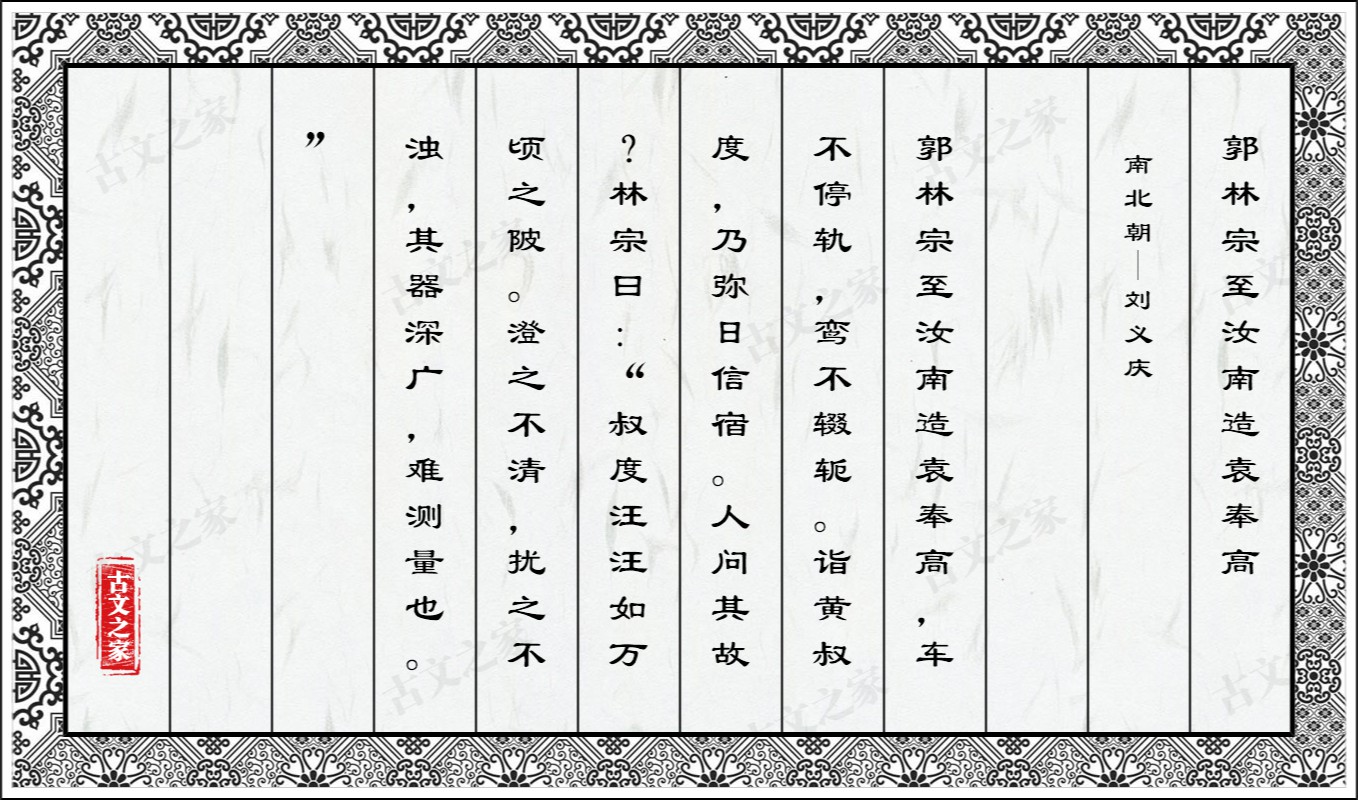 郭林宗至汝南造袁奉高
南北朝—刘义庆
郭林宗至汝南造袁奉高，车
不停轨，鸾不辍轭。诣黄叔
度，乃弥日信宿。人问其故
？林宗曰：“叔度汪汪如万
顷之陂。澄之不清，扰之不
浊，其器深广，难测量也。
”
古文之家